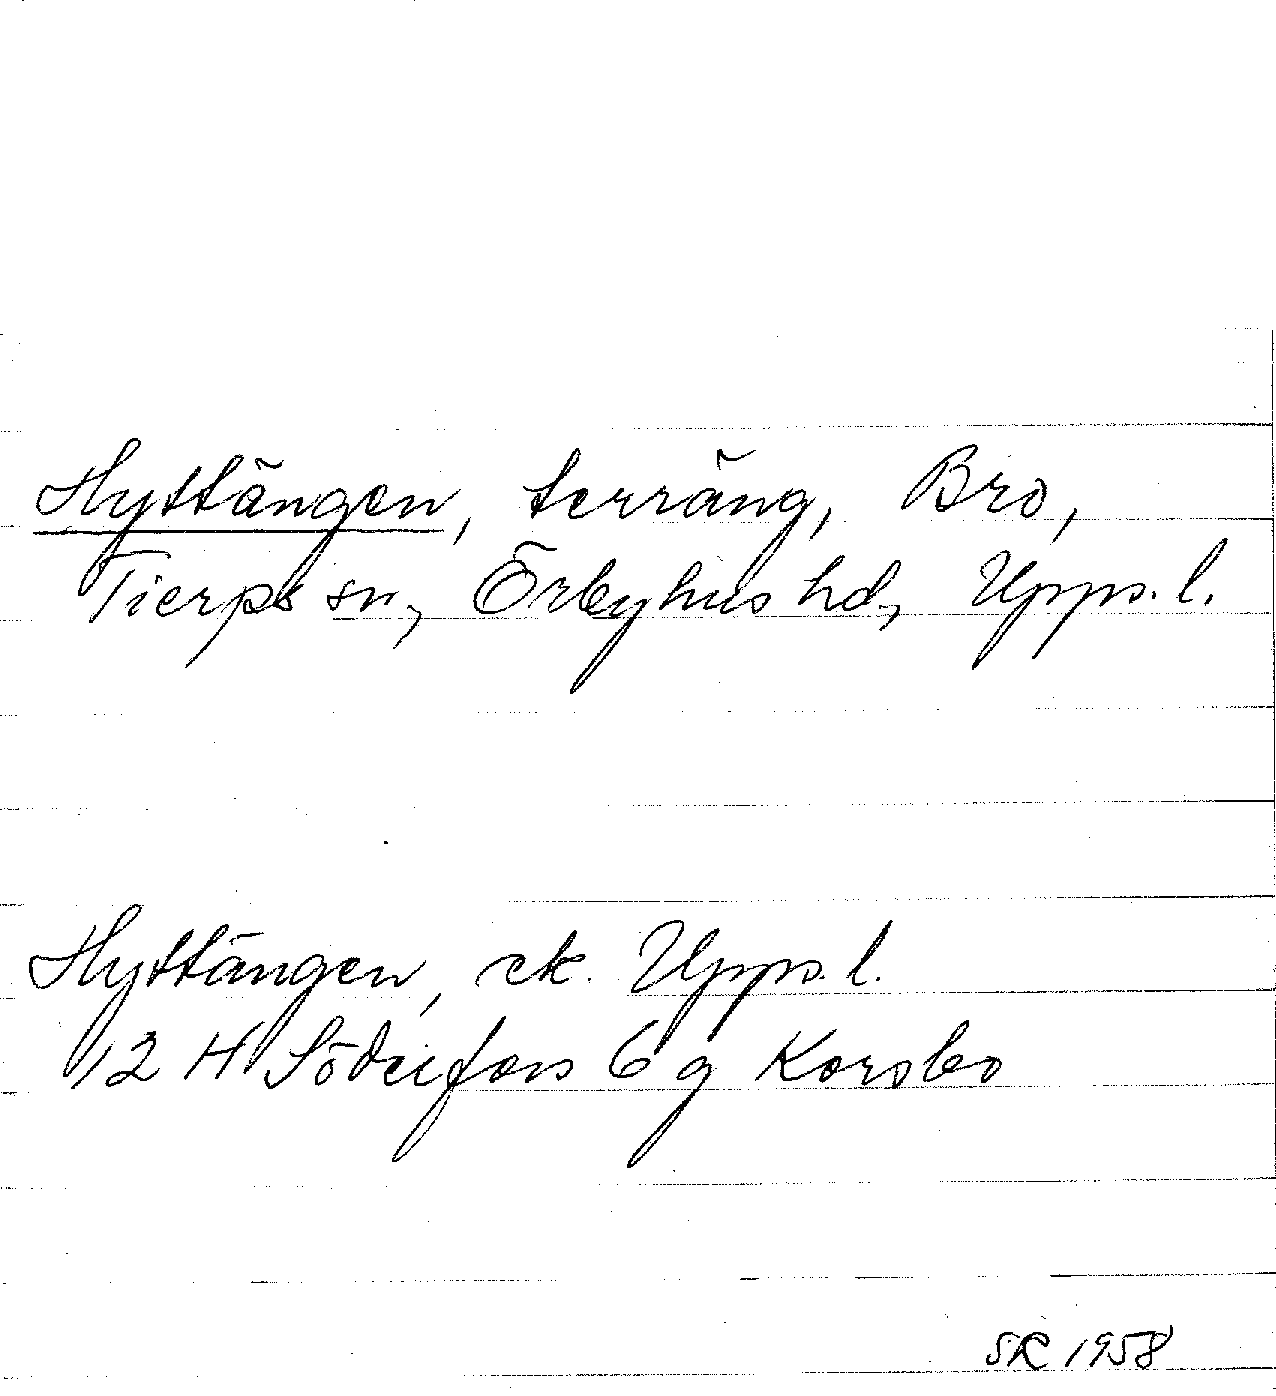 Hyttängen, terräng, Bro,
Tierps sn, Örbyhus hd, Upps. l.
Hyttängen, ek. Upps. l.
12 H Söderfors 6 g Korsbo
SR 1958